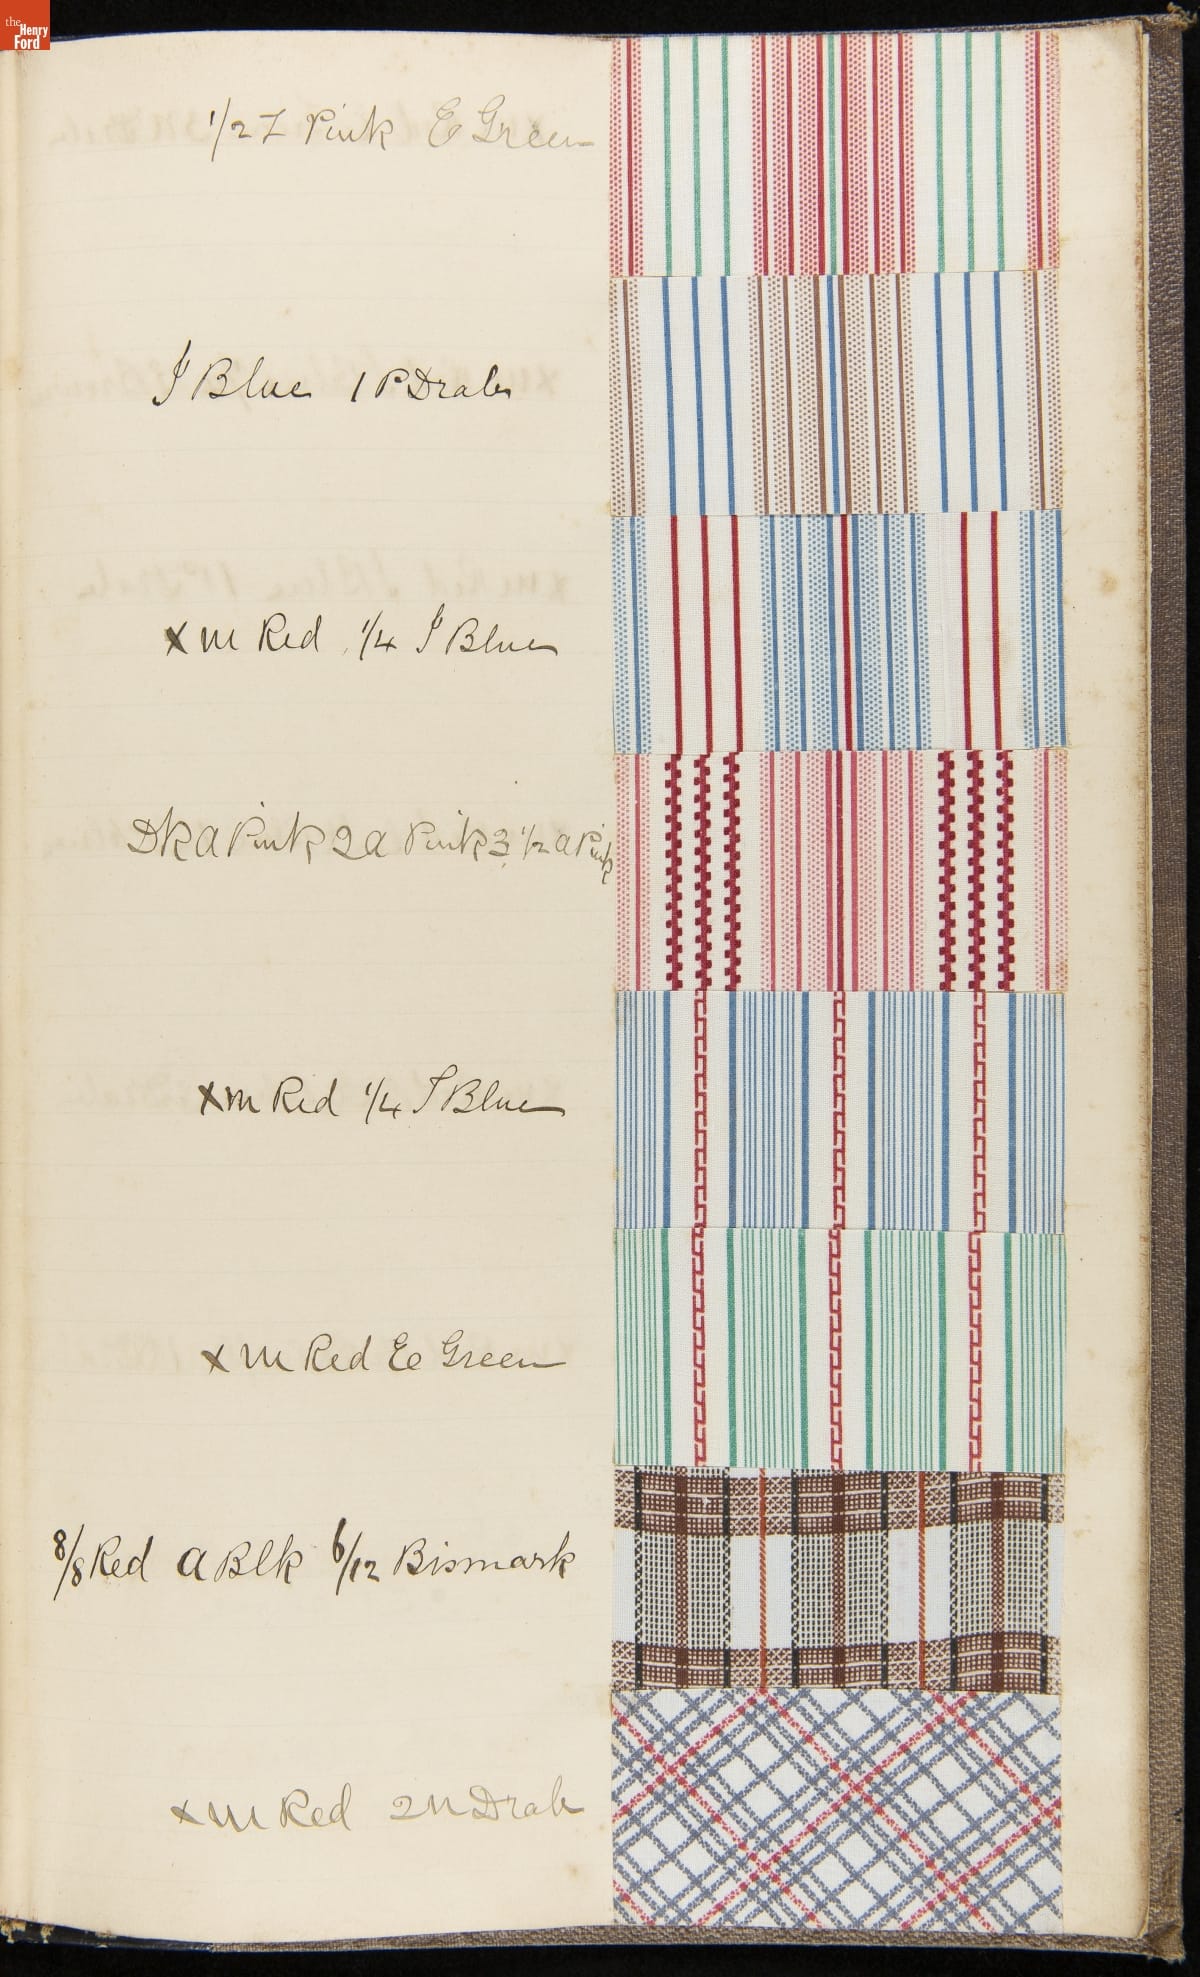 the Henry Ford
1/2 Z Pink E Green
J Blue 1 P Drab
x m Red 1/4 J Blue
Dk a Pink 2 a Pink 3 1/2 a Pink
x m Red 1/4 J Blue
x m Red E Green
8/8 Red a Blk 6/12 Bismark
x m Red 2 n Drab